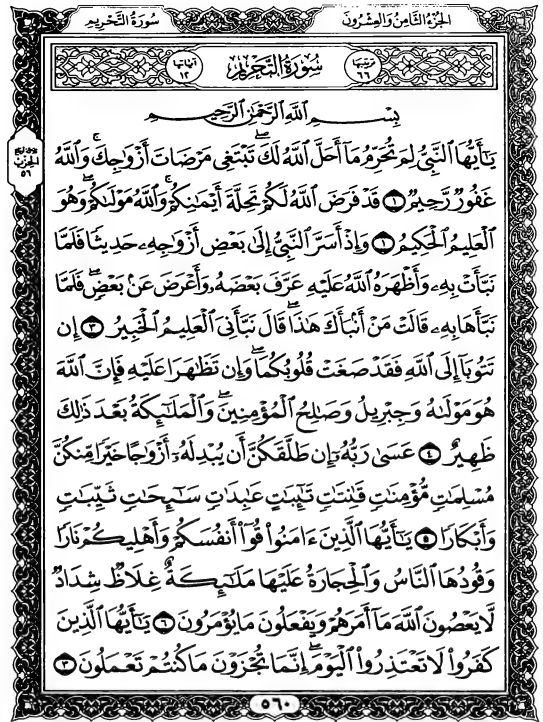 سُورَةُ التَّحْرِيمِ
الجُزْءُ الثَّامِنُ وَالعِشْرُونَ
ترتيبها ٦٦
سُورَةُ التَّحْرِيمِ
آياتها ١٢
الحزب ٥٦
بِسْمِ اللَّهِ الرَّحْمَٰنِ الرَّحِيمِ
يَٰٓأَيُّهَا ٱلنَّبِىُّ لِمَ تُحَرِّمُ مَآ أَحَلَّ ٱللَّهُ لَكَۖ تَبْتَغِى مَرْضَاتَ أَزْوَٰجِكَۚ وَٱللَّهُ
غَفُورٌ رَّحِيمٌ ١ قَدْ فَرَضَ ٱللَّهُ لَكُمْ تَحِلَّةَ أَيْمَٰنِكُمْۚ وَٱللَّهُ مَوْلَىٰكُمْۖ وَهُوَ
ٱلْعَلِيمُ ٱلْحَكِيمُ ٢ وَإِذْ أَسَرَّ ٱلنَّبِىُّ إِلَىٰ بَعْضِ أَزْوَٰجِهِۦ حَدِيثًا فَلَمَّا
نَبَّأَتْ بِهِۦ وَأَظْهَرَهُ ٱللَّهُ عَلَيْهِ عَرَّفَ بَعْضَهُۥ وَأَعْرَضَ عَنۢ بَعْضٍۖ فَلَمَّا
نَبَّأَهَا بِهِۦ قَالَتْ مَنْ أَنۢبَأَكَ هَٰذَاۖ قَالَ نَبَّأَنِىَ ٱلْعَلِيمُ ٱلْخَبِيرُ ٣ إِن
تَتُوبَآ إِلَى ٱللَّهِ فَقَدْ صَغَتْ قُلُوبُكُمَاۖ وَإِن تَظَٰهَرَا عَلَيْهِ فَإِنَّ ٱللَّهَ
هُوَ مَوْلَىٰهُ وَجِبْرِيلُ وَصَٰلِحُ ٱلْمُؤْمِنِينَۖ وَٱلْمَلَٰٓئِكَةُ بَعْدَ ذَٰلِكَ
ظَهِيرٌ ٤ عَسَىٰ رَبُّهُۥٓ إِن طَلَّقَكُنَّ أَن يُبْدِلَهُۥٓ أَزْوَٰجًا خَيْرًا مِّنكُنَّ
مُسْلِمَٰتٍ مُّؤْمِنَٰتٍ قَٰنِتَٰتٍ تَٰٓئِبَٰتٍ عَٰبِدَٰتٍ سَٰٓئِحَٰتٍ ثَيِّبَٰتٍ
وَأَبْكَارًا ٥ يَٰٓأَيُّهَا ٱلَّذِينَ ءَامَنُوا۟ قُوٓا۟ أَنفُسَكُمْ وَأَهْلِيكُمْ نَارًا
وَقُودُهَا ٱلنَّاسُ وَٱلْحِجَارَةُ عَلَيْهَا مَلَٰٓئِكَةٌ غِلَاظٌ شِدَادٌ
لَّا يَعْصُونَ ٱللَّهَ مَآ أَمَرَهُمْ وَيَفْعَلُونَ مَا يُؤْمَرُونَ ٦ يَٰٓأَيُّهَا ٱلَّذِينَ
كَفَرُوا۟ لَا تَعْتَذِرُوا۟ ٱلْيَوْمَۖ إِنَّمَا تُجْزَوْنَ مَا كُنتُمْ تَعْمَلُونَ
٥٦٠